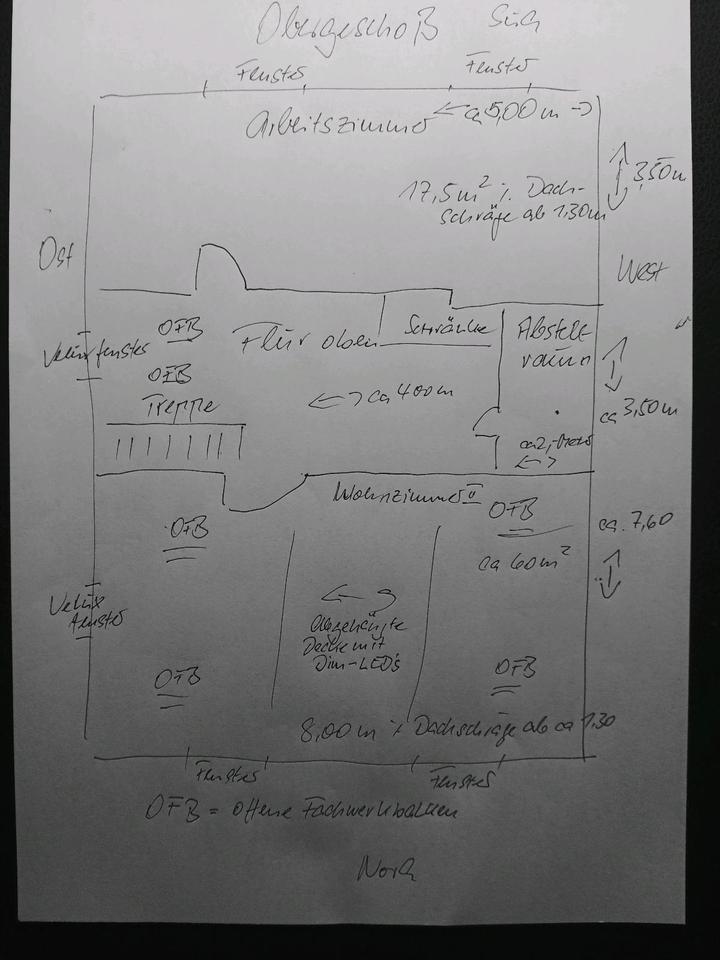 Obergeschoß Süd
Fenster
Fenster
Arbeitszimmer
← ca 5,00m →
17,5m² i. Dach-
schräge ab 1.30m
3,50m
Ost
West
OFB
Veluxfenster
OFB
Flur oben
Schränke
Abstell
raum
Treppe
↔ ca 400m
ca 3,50m
ca 2,
↔
Wohnzimmer II
OFB
OFB
ca. 7,60
ca 60m²
Velux
fenster
Abgehängte
Decke mit
Dim-LED's
OFB
OFB
8,00m i Dachschräge ab ca 1.30
Fenster
Fenster
OFB = offene Fachwerkbalken
Nord